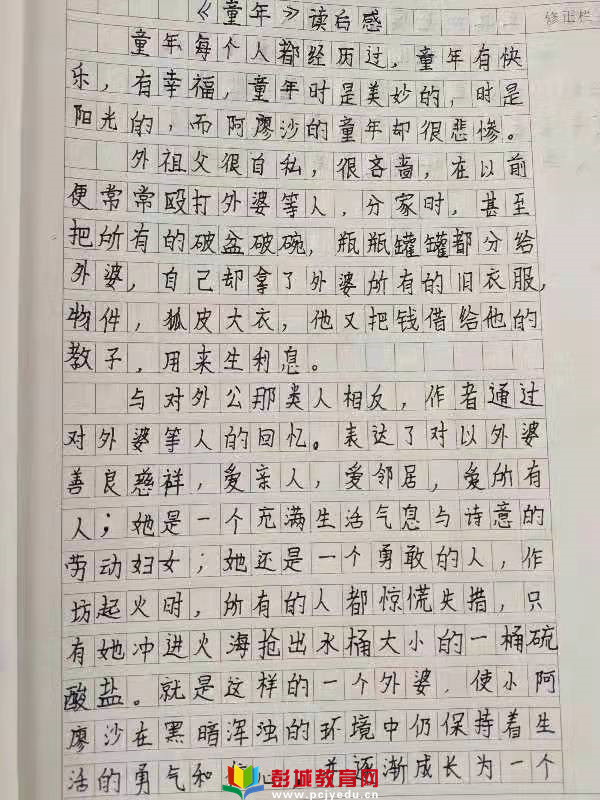 《童年》读后感
修正栏
童年每个人都经历过，童年有快
乐，有幸福，童年时是美妙的，时是
阳光的，而阿廖沙的童年却很悲惨。
外祖父很自私，很吝啬，在以前
便常常殴打外婆等人，分家时，甚至
把所有的破盆破碗，瓶瓶罐罐都分给
外婆，自己却拿了外婆所有的旧衣服，
物件，狐皮大衣，他又把钱借给他的
教子，用来生利息。
与对外公那类人相反，作者通过
对外婆等人的回忆。表达了对以外婆
善良慈祥，爱亲人，爱邻居，爱所有
人；她是一个充满生活气息与诗意的
劳动妇女；她还是一个勇敢的人，作
坊起火时，所有的人都惊慌失措，只
有她冲进火海抢出水桶大小的一桶硫
酸盐。就是这样的一个外婆，使小阿
廖沙在黑暗浑浊的环境中仍保持着生
活的勇气和心逐渐成长为一个
彭城教育网
www.pcjyedu.cn